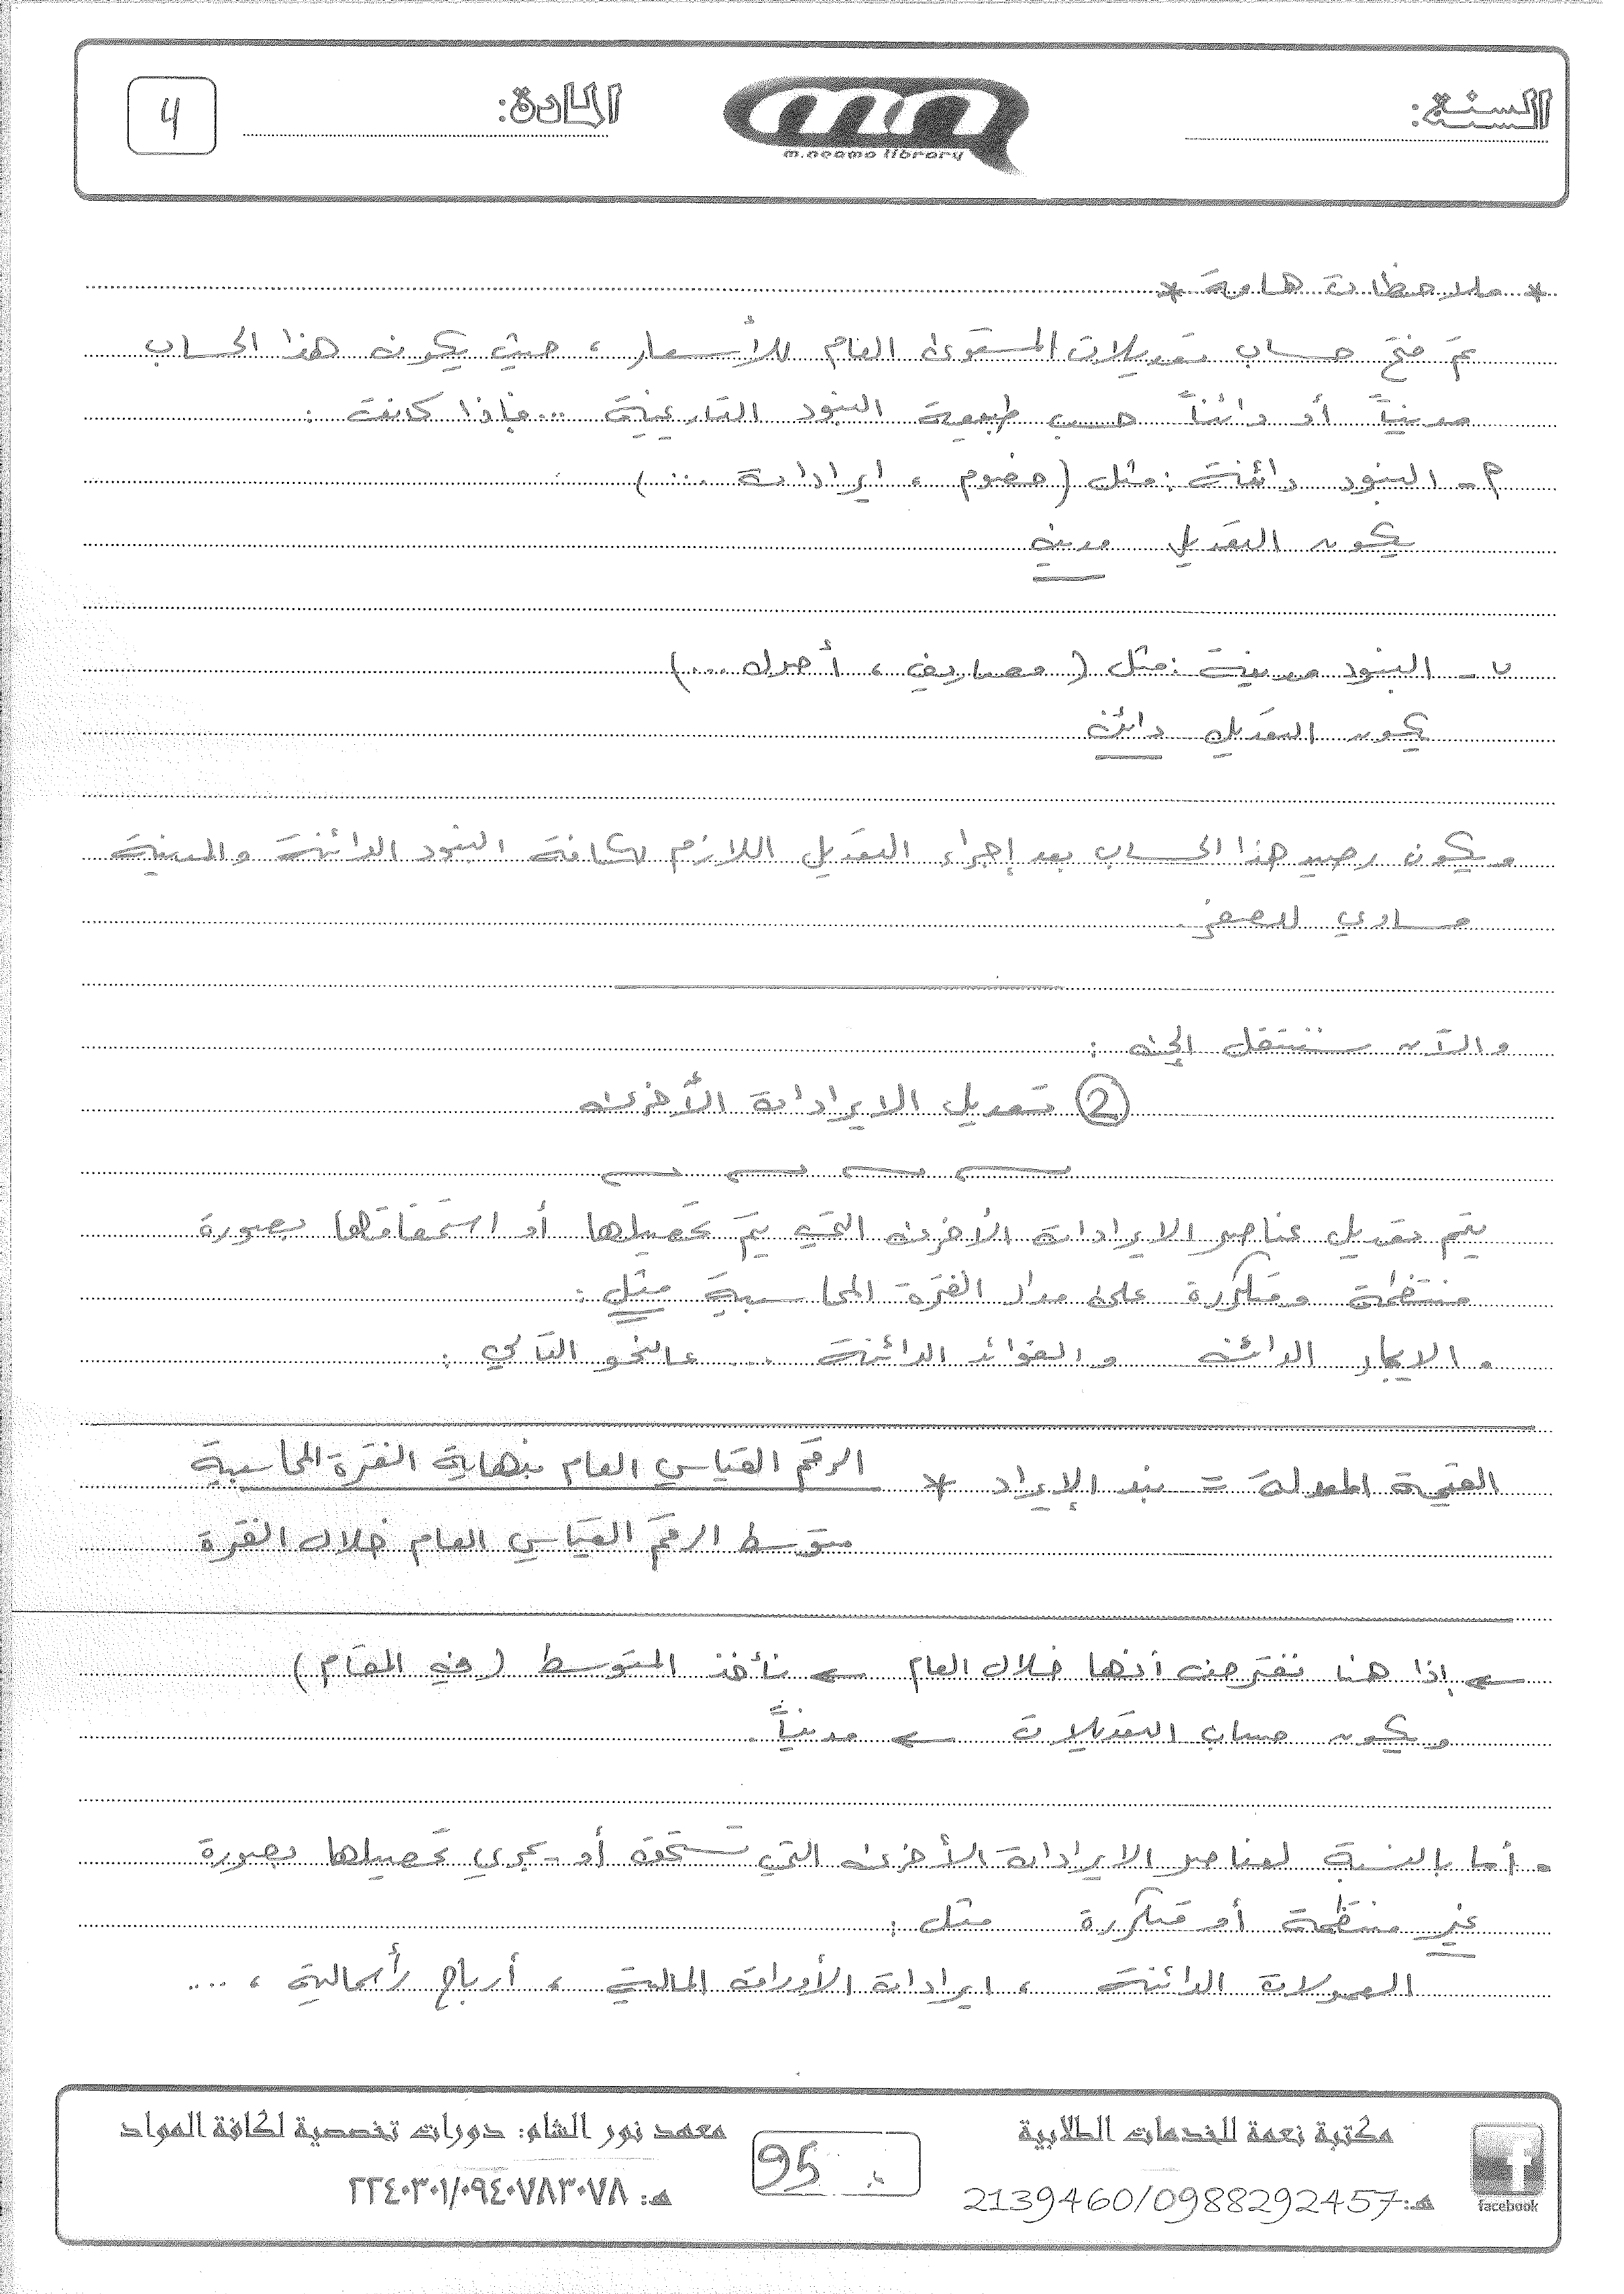 السنة:
m.neama library
المادة:
4
* ملاحظات هامة *
تمّ فتح حساب تعديلات المستوى العام للأسعار ، حيث يكون هذا الحساب
مديناً أو دائناً حسب طبيعة البنود التاريخية ... فإذا كانت :
م- البنود دائنة : مثل (خصوم ، ايرادات ...)
يكون التعديل مدين
ب- البنود مدينة : مثل (مصاريف ، أصول ...)
يكون التعديل دائن
ويكون رصيد هذا الحساب بعد إجراء التعديل اللازم لكافة البنود الدائنة والمدينة
مساوي للصفر.
والآن سننتقل إلى :
② تعديل الايرادات الأخرى
يتم تعديل عناصر الايرادات الأخرى التي يتمّ تحصيلها أو استحقاقها بصورة
منتظمة ومتكررة على مدار الفترة المحاسبية مثل :
• الايجار الدائن والفوائد الدائنة ... عالنحو التالي :
القيمة المعدلة = بند الإيراد * الرقم القياسي العام بنهاية الفترة المحاسبية
متوسط الرقم القياسي العام خلال الفترة
← إذا هنا نفترض أنها خلال العام ← نأخذ المتوسط (في المقام)
ويكون حساب التعديلات ← مديناً.
• أما بالنسبة لعناصر الايرادات الأخرى التي تستحق أو يجري تحصيلها بصورة
غير منتظمة أو متكررة مثل :
العمولات الدائنة ، ايرادات الأوراق المالية ، أرباح رأسمالية ، ....
facebook
مكتبة نعمة للخدمات الطلابية
هـ: 2139460/0988292457
95
معهد نور الشام: دورات تخصصية لكافة المواد
هـ: ٢٢٤٠٣٠١/٠٩٤٠٧٨٣٠٧٨